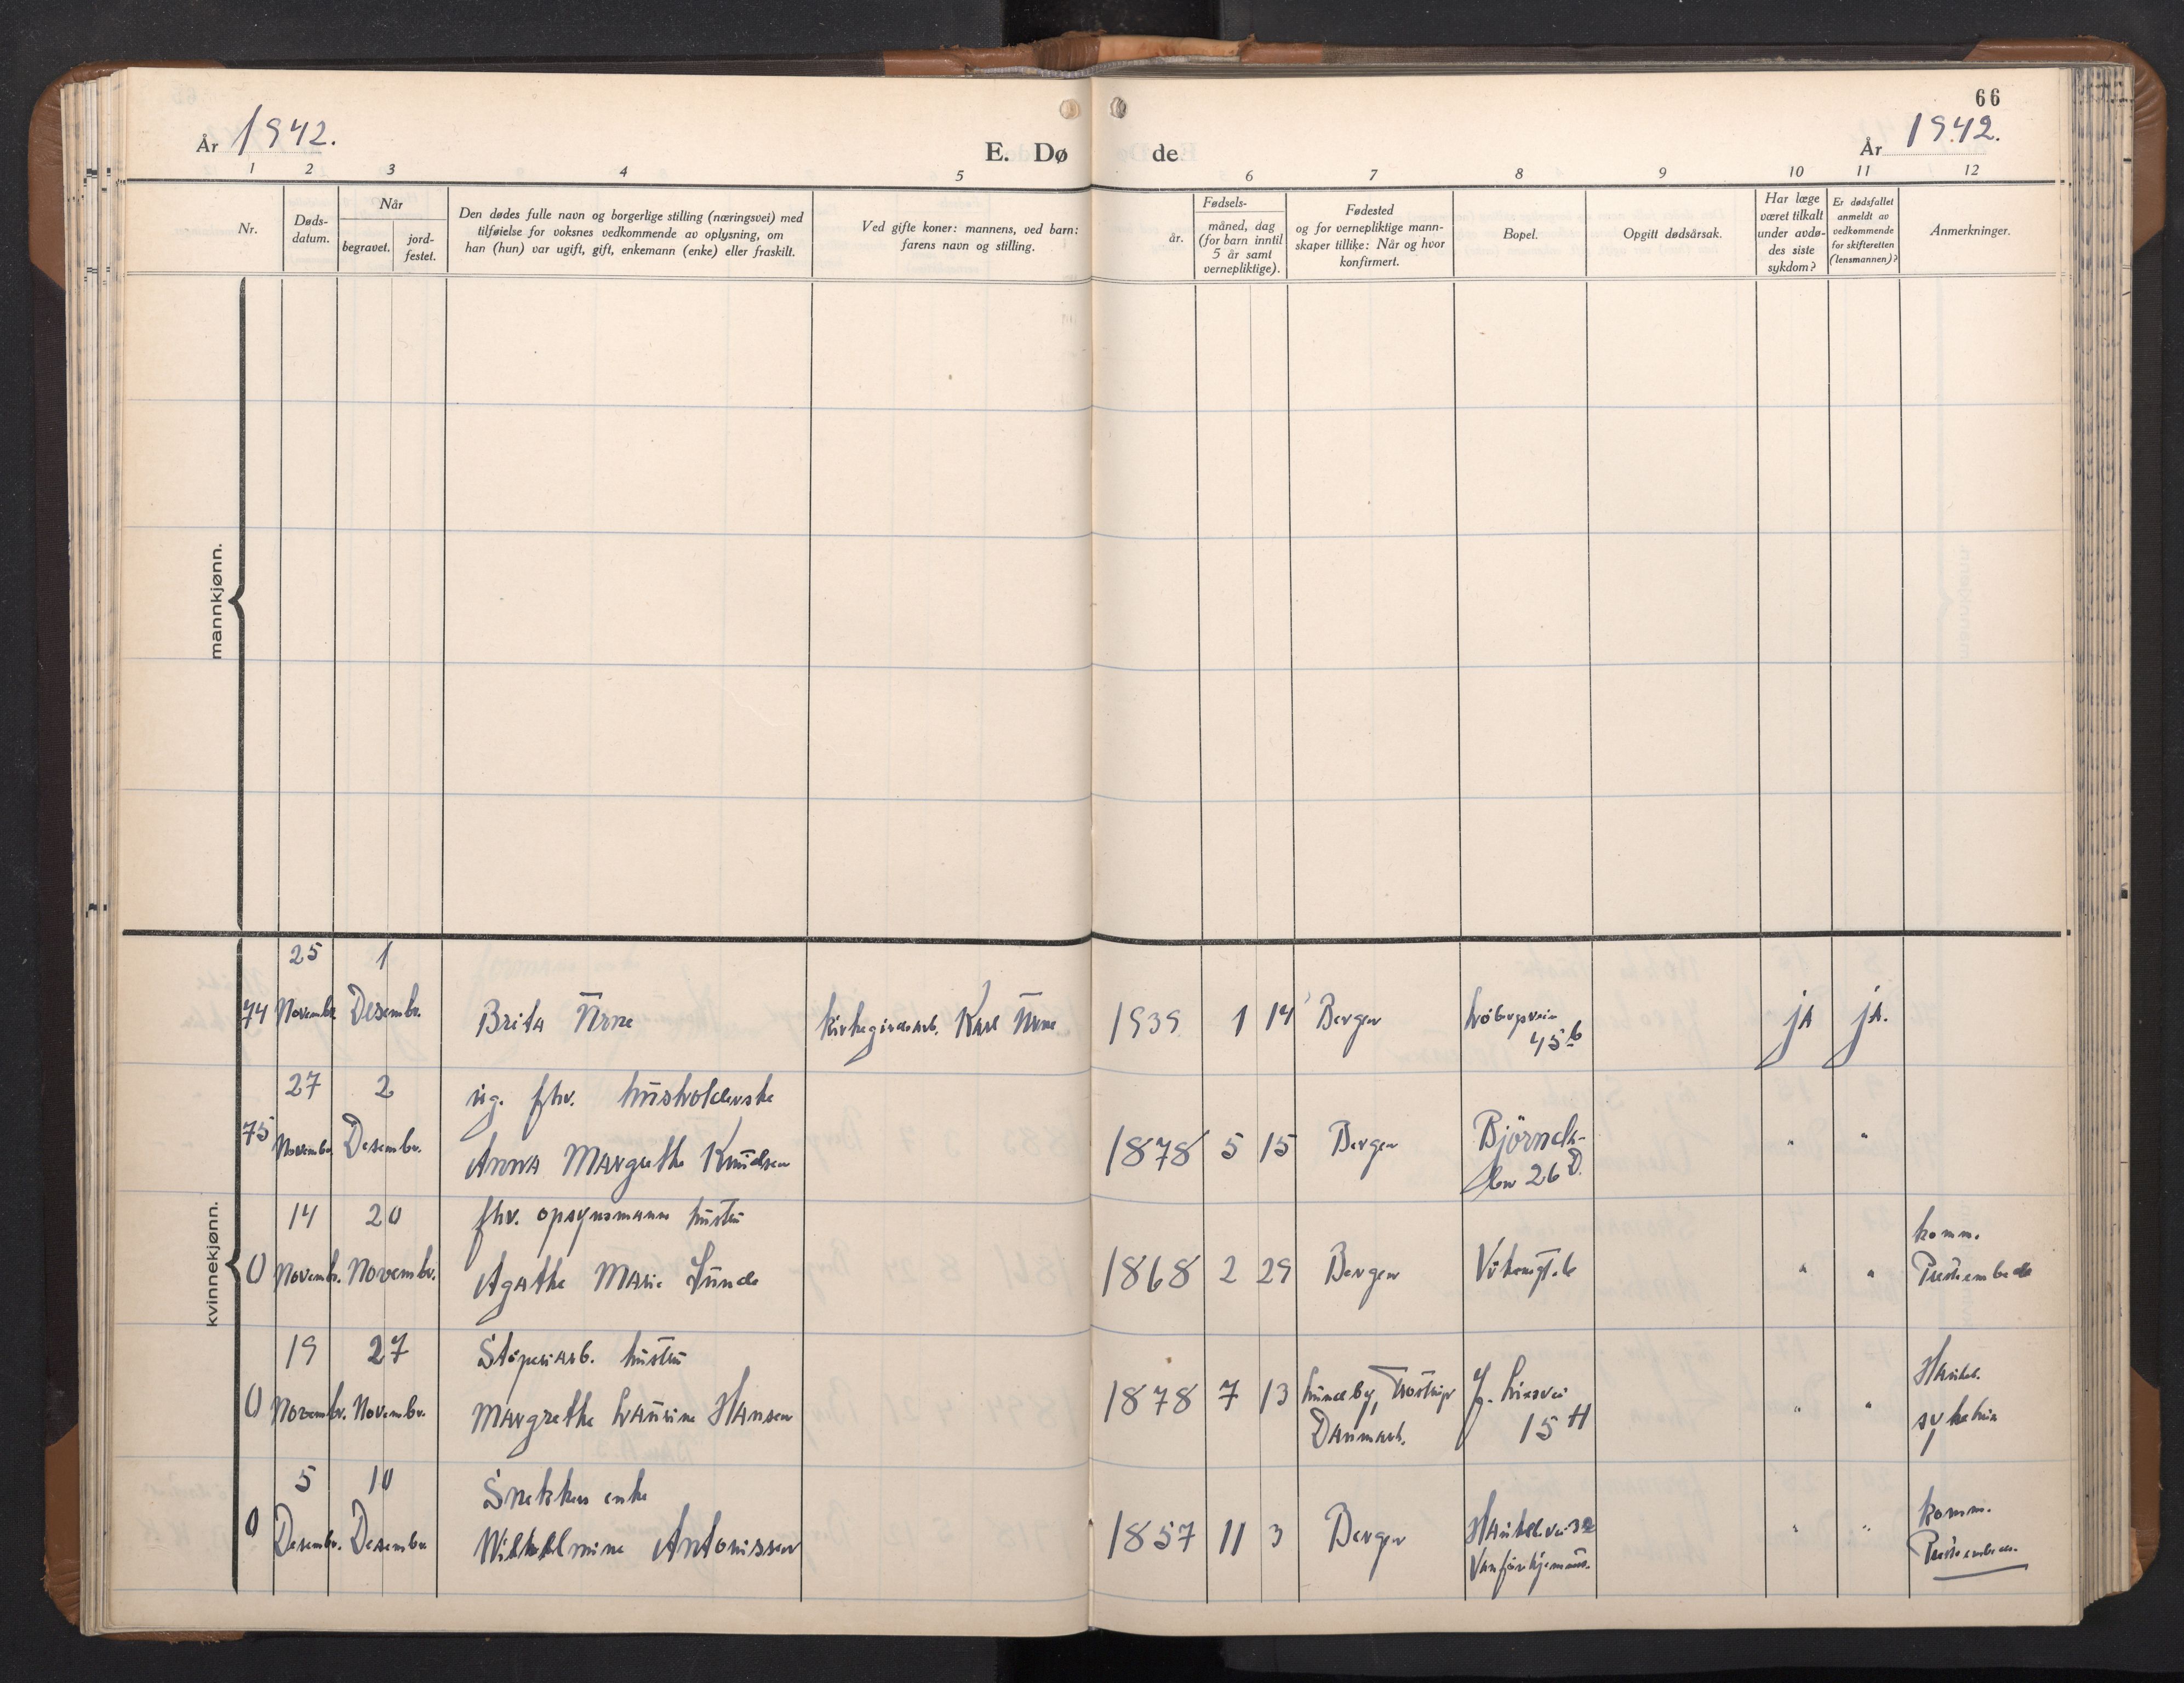 66
År 1942.
E. Dø de
År 1942.
1 2 3 4 5 6 7 8 9 10 11 12
Nr.
Døds-
datum.
Når
begravet.
jord-
festet.
Den dødes fulle navn og borgerlige stilling (næringsvei) med
tilføielse for voksnes vedkommende av oplysning, om
han (hun) var ugift, gift, enkemann (enke) eller fraskilt.
Ved gifte koner: mannens, ved barn:
farens navn og stilling.
Fødsels-
år.
måned, dag
(for barn inntil
5 år samt
vernepliktige).
Fødested
og for vernepliktige mann-
skaper tillike: Når og hvor
konfirmert.
Bopel.
Opgitt dødsårsak.
Har læge
været tilkalt
under avdø-
des siste
sykdom?
Er dødsfallet
anmeldt av
vedkommende
for skifteretten
(lensmannen)?
Anmerkninger.
mannkjønn.
kvinnekjønn.
25 1
74 Novembr. Desembr. Brita Urne Kirkegårdsarb. Karl Urne 1939 1 14 Bergen
45 b
ja ja.
27 2 ug. fhv. husholderske
75 Novembr. Desembr. Anna Margrethe Knudsen 1878 5 15 Bergen Björnda-
len 26 D. " "
14 20 fhv. opsynsmanns hustru
0 Novembr. Novembr. Agathe Marie Lunde 1868 2 29 Bergen " "
komm.
Presteembede
19 27 Støperiarb. hustru
0 Novembr. Novembr. Margrethe Laurine Hansen 1878 7 13 Lundby,
Danmark.
15 H " "
Haukel.
sykehus
5 10 Snekkers enke
0 Desembr. Desembr. Wilhelmine Antonissen 1857 11 3 Bergen
" "
komm.
Presteembede.